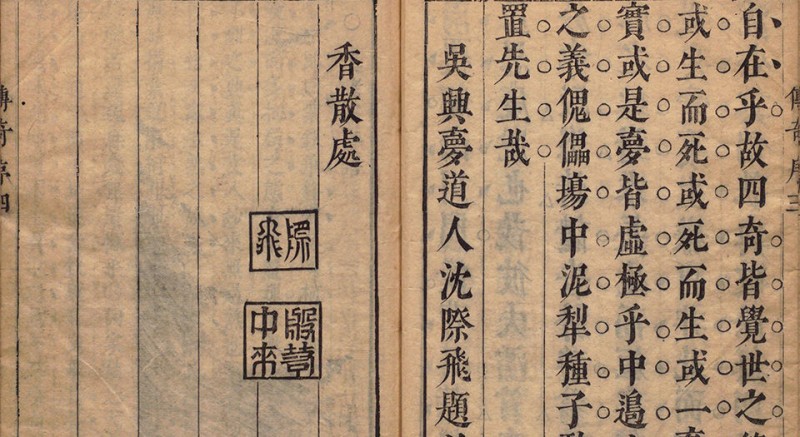 傳奇序三
自在乎故四奇皆覺世之
或生而死或死而生或一
實或是夢皆虛極乎中邊
之義傀儡場中泥犁種子
置先生哉
吳興夢道人沈際飛題
香散處
中來
傳奇序四